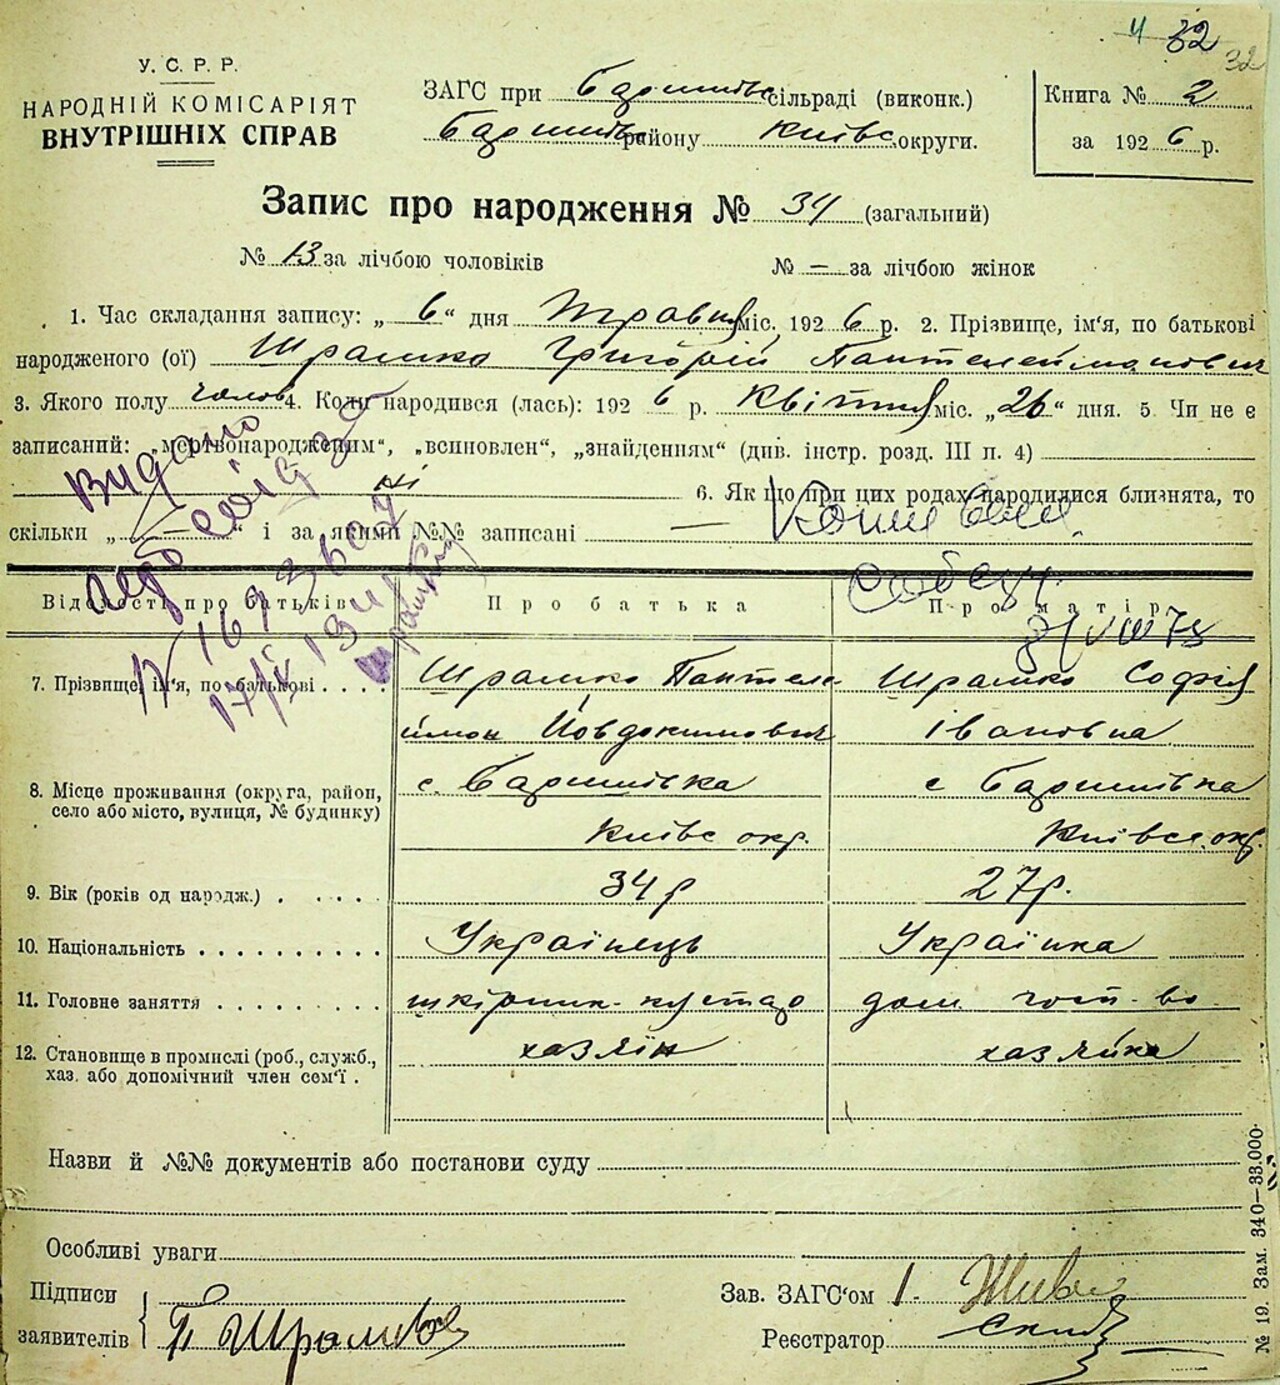 4 32
32
У. С. Р. Р.
НАРОДНІЙ КОМІСАРІЯТ
ВНУТРІШНІХ СПРАВ
ЗАГС при Баришівс сільраді (виконк.)
Баришівс району Київс округи.
Книга № 2
за 1926 р.
Запис про народження № 34 (загальний)
№ 13 за лічбою чоловіків № — за лічбою жінок
1. Час складання запису: „ 6 “ дня Травня міс. 1926 р. 2. Прізвище, ім'я, по батькові
народженого (ої) Шрамко Григорій Пантелеймонович
3. Якого полу чолов 4. Коли народився (лась): 1926 р. Квітня міс. „26“ дня. 5. Чи не є
записаний: „мертвонародженим“, „всиновлен“, „знайденням“ (див. інстр. розд. III п. 4)
ні 6. Як що при цих родах народилися близнята, то
скільки „ — “ і за якими №№ записані —
Видано
свід
17/IX
31/VIII 78
Відомості про батьків Про батька Про матір
7. Прізвище, ім'я, по батькові . . . . Шрамко Пантеле Шрамко Софія
ймон Йовдокимович Івановна
8. Місце проживання (округа, район, село або місто, вулиця, № будинку) с. Баришівка с Баришівка
Київс окр. Київсс. окр.
9. Вік (років од народж.) . . . . . 34 р 27 р.
10. Національність . . . . . . . . . . Українець Українка
11. Головне заняття . . . . . . . . . шкірник-кустар дом. госп-во
12. Становище в промислі (роб., служб., хазяїн хазяйка
хаз. або допомічний член сем'ї .
Назви й №№ документів або постанови суду
Особливі уваги
Підписи
заявителів П Шрамко
Зав. ЗАГС'ом
Реєстратор
№ 19. Зам. 340—33.000